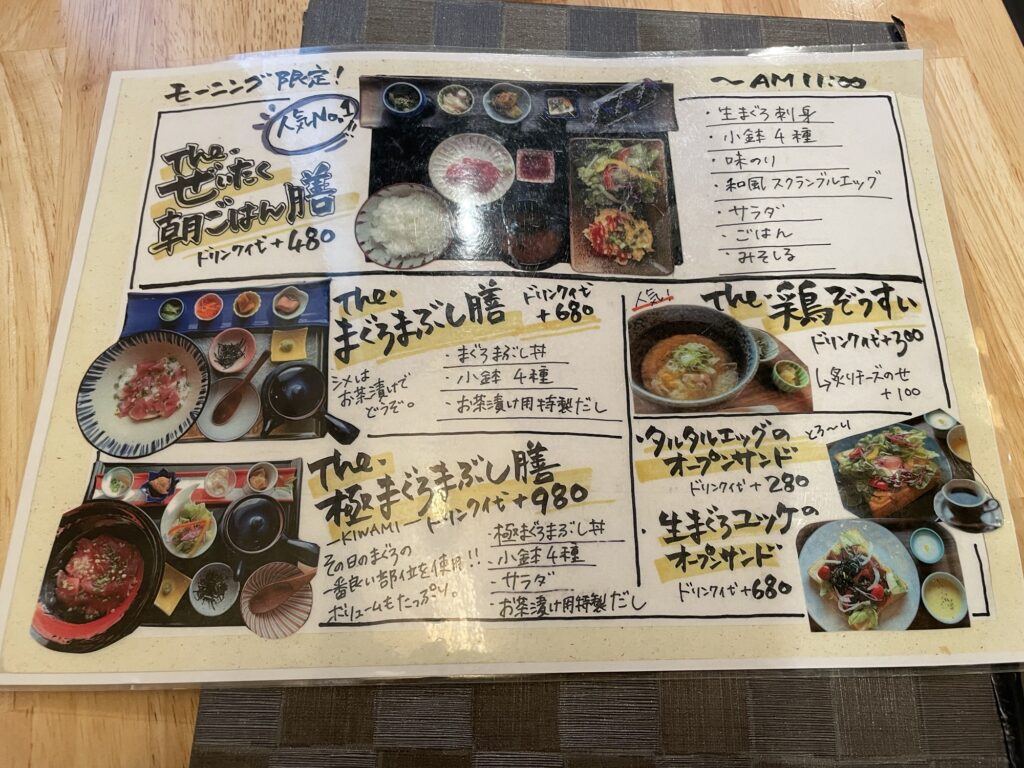 モーニング限定!
〜AM11:00
人気No.1!!
The.
ぜいたく
朝ごはん膳
ドリンク代+480
・生まぐろ刺身
・小鉢4種
・味のり
・和風スクランブルエッグ
・サラダ
・ごはん
・みそしる
The.
まぐろまぶし膳
ドリンク代
+680
シメは
お茶漬けで
どうぞ。
・まぐろまぶし丼
・小鉢 4種
・お茶漬け用特製だし
人気!
The.鶏ぞうすい
ドリンク代+300
↳炙りチーズのせ
+100
The.
極まぐろまぶし膳
―KIWAMI―
ドリンク代+980
その日のまぐろの
一番良い部位を使用!!
ボリュームもたっぷり。
・極まぐろまぶし丼
・小鉢4種
・サラダ
・お茶漬け用特製だし
・タルタルエッグの
オープンサンド
とろ〜り
ドリンク代+280
・生まぐろユッケの
オープンサンド
ドリンク代+680